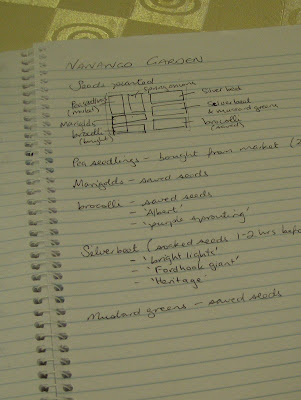 NANANGO GARDEN
Seeds planted
Pea seedlings
(market)
Marigolds
brocolli
(bought)
Spring onions
Silverbeet
Silverbeet
& mustard greens
brocolli
(saved)
Pea seedlings - bought from market (2
Marigolds - saved seeds
brocolli - saved seeds
- 'Albert'
- 'purple sprouting'
Silverbeet (soaked seeds 1-2 hrs befo
- 'bright lights'
- 'Fordhook giant'
- 'Heritage'
Mustard greens - saved seeds